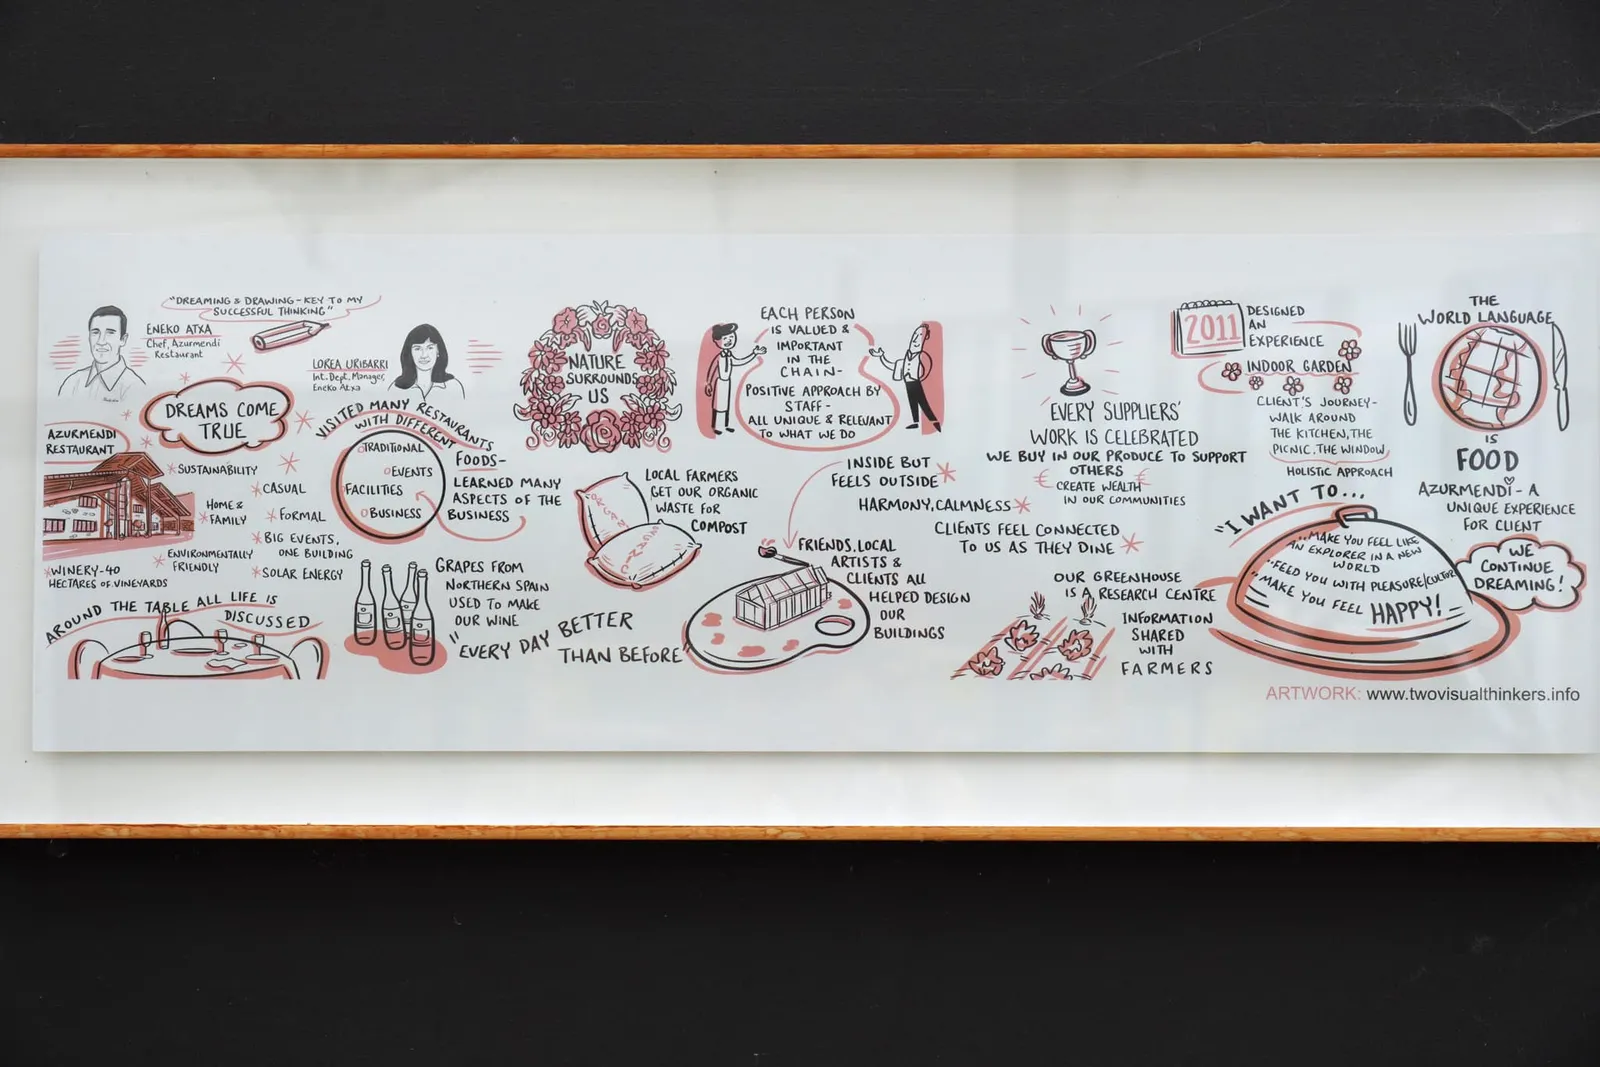 "DREAMING & DRAWING - KEY TO MY
SUCCESSFUL THINKING"
ENEKO ATXA
Chef, Azurmendi
Restaurant
LOREA URIBARRI
Int. Dept. Manager,
Eneko Atxa
DREAMS COME
TRUE
AZURMENDI
RESTAURANT
SUSTAINABILITY
CASUAL
HOME &
FAMILY
FORMAL
BIG EVENTS,
ONE BUILDING
ENVIRONMENTALLY
FRIENDLY
SOLAR ENERGY
WINERY - 40
HECTARES OF VINEYARDS
AROUND THE TABLE ALL LIFE IS
DISCUSSED
VISITED MANY RESTAURANTS
WITH DIFFERENT
TRADITIONAL
EVENTS
FACILITIES
BUSINESS
FOODS-
LEARNED MANY
ASPECTS OF THE
BUSINESS
GRAPES FROM
NORTHERN SPAIN
USED TO MAKE
OUR WINE
"EVERY DAY BETTER
THAN BEFORE"
NATURE
SURROUNDS
US
ORGANIC
LOCAL FARMERS
GET OUR ORGANIC
WASTE FOR
COMPOST
EACH PERSON
IS VALUED &
IMPORTANT
IN THE
CHAIN-
POSITIVE APPROACH BY
STAFF -
ALL UNIQUE & RELEVANT
TO WHAT WE DO
INSIDE BUT
FEELS OUTSIDE
HARMONY, CALMNESS
CLIENTS FEEL CONNECTED
TO US AS THEY DINE
FRIENDS, LOCAL
ARTISTS &
CLIENTS ALL
HELPED DESIGN
OUR
BUILDINGS
EVERY SUPPLIERS'
WORK IS CELEBRATED
WE BUY IN OUR PRODUCE TO SUPPORT
OTHERS
€ CREATE WEALTH €
IN OUR COMMUNITIES
OUR GREENHOUSE
IS A RESEARCH CENTRE
INFORMATION
SHARED
WITH
FARMERS
2011
DESIGNED
AN
EXPERIENCE
INDOOR GARDEN
CLIENT'S JOURNEY-
WALK AROUND
THE KITCHEN, THE
PICNIC, THE WINDOW
HOLISTIC APPROACH
THE
WORLD LANGUAGE
IS
FOOD
AZURMENDI - A
UNIQUE EXPERIENCE
FOR CLIENT
"I WANT TO...
..MAKE YOU FEEL LIKE
AN EXPLORER IN A NEW
WORLD
..FEED YOU WITH PLEASURE/CULTURE
..MAKE YOU FEEL HAPPY!
WE
CONTINUE
DREAMING!
ARTWORK: www.twovisualthinkers.info